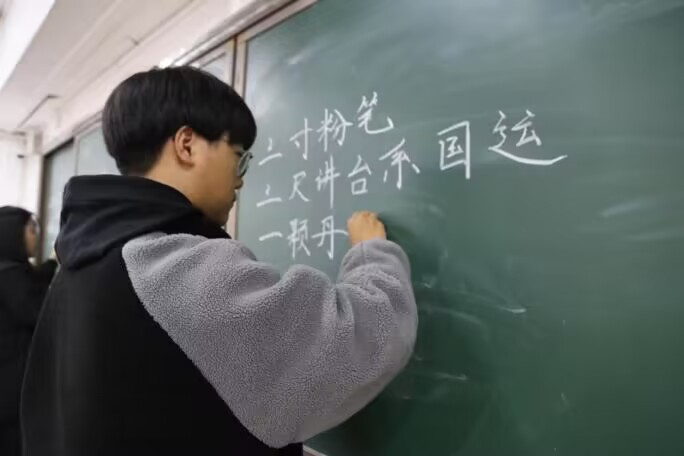 三寸粉笔
三尺讲台系国运
一颗丹